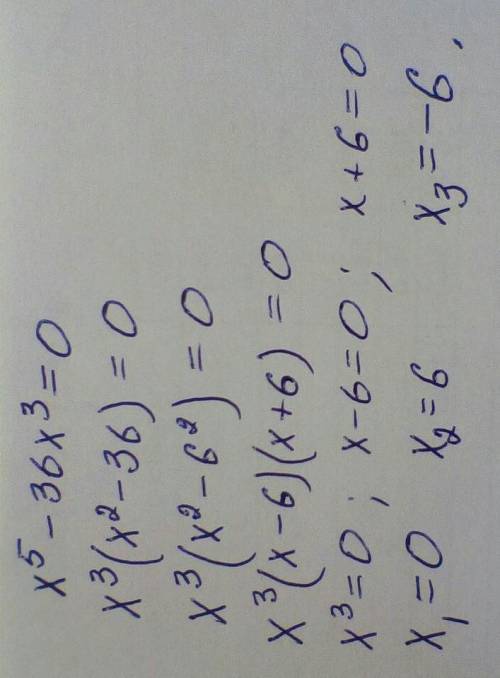 x⁵ − 36x³ = 0
x³(x² − 36) = 0
x³(x² − 6²) = 0
x³(x − 6)(x + 6) = 0
x³ = 0 ; x − 6 = 0 ; x + 6 = 0
x₁ = 0 x₂ = 6 x₃ = −6.